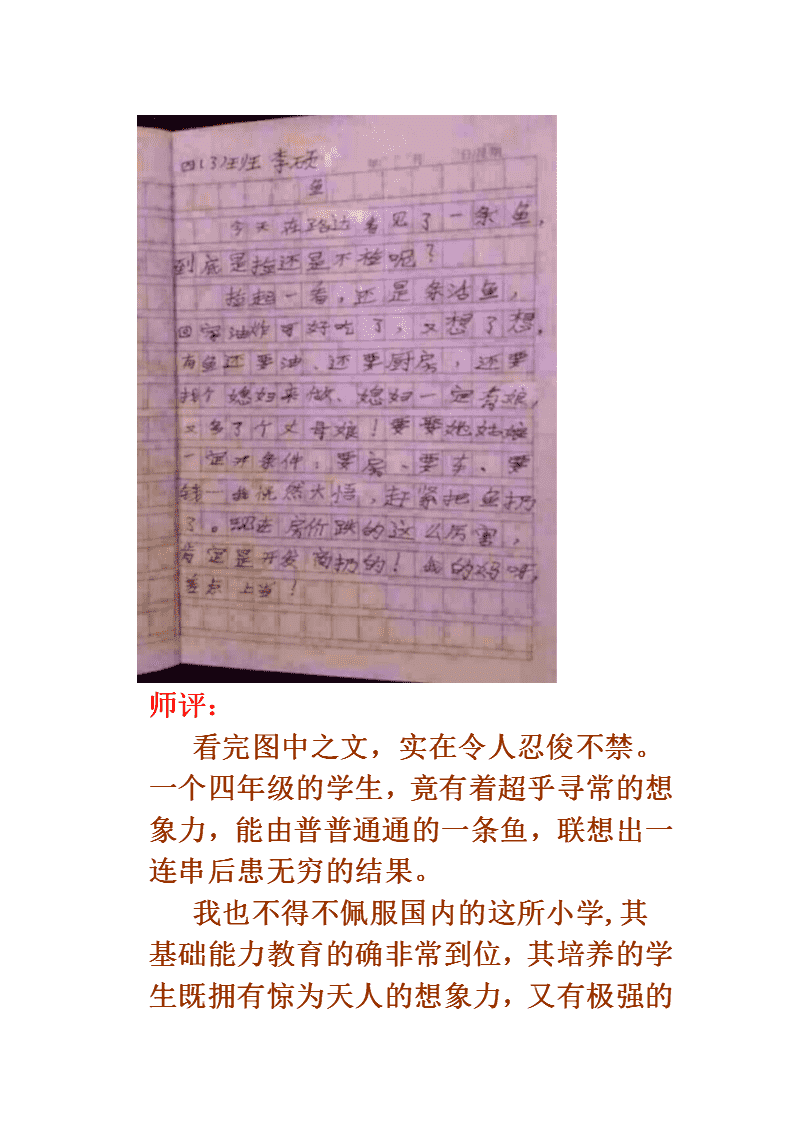 四(3)班 李硕
年 月 日 星期
鱼
今天在路边看见了一条鱼，
到底是捡还是不捡呢？
捡起一看，还是条活鱼，
回家油炸可好吃了，又想了想，
有鱼还要油、还要厨房，还要
找个媳妇来做、媳妇一定有娘，
又多了个丈母娘！要娶她姑娘
一定开条件：要房、要车、要
钱…我恍然大悟，赶紧把鱼扔
了。现在房价跌的这么厉害，
肯定是开发商扔的！我的妈呀，
差点上当！
师评：
看完图中之文，实在令人忍俊不禁。
一个四年级的学生，竟有着超乎寻常的想
象力，能由普普通通的一条鱼，联想出一
连串后患无穷的结果。
我也不得不佩服国内的这所小学,其
基础能力教育的确非常到位，其培养的学
生既拥有惊为天人的想象力，又有极强的